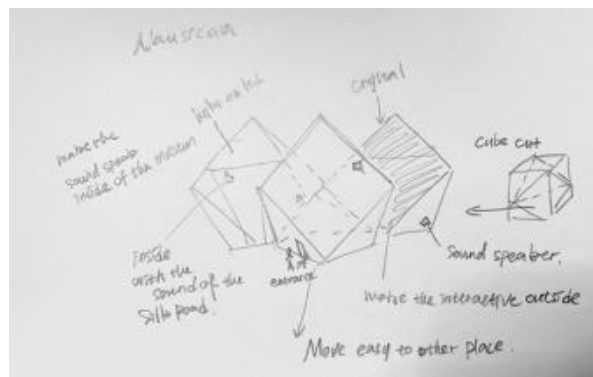 crystal
make the
sound speak
inside of the
Cube cut
inside
with the
sound of the
Silk Road.
entrance
Sound speaker.
make the interactive outside
Move easy to other place.